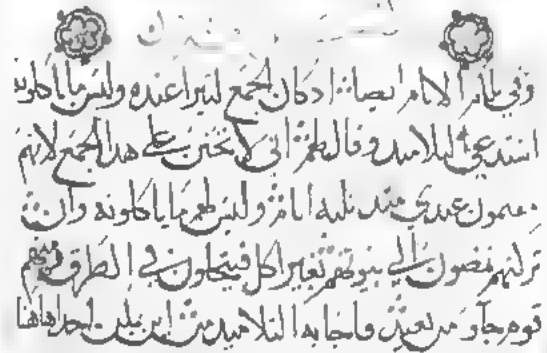 وفي تلك الايام ايضا اد كان الجمع كثيرا عنده وليس ما ياكلونه
استدعي التلاميد وقال لهم اني لاتحنن علي هدا الجمع لانهم
مقيمون عندي مند ثلثه ايام وليس لهم ما ياكلونه وان
تركتهم يمضون الي بيوتهم بغير اكل فيتحلون في الطرق ومنهم
قوم جاو من بعيد فاجابه التلاميد من اين احدا هاهنا